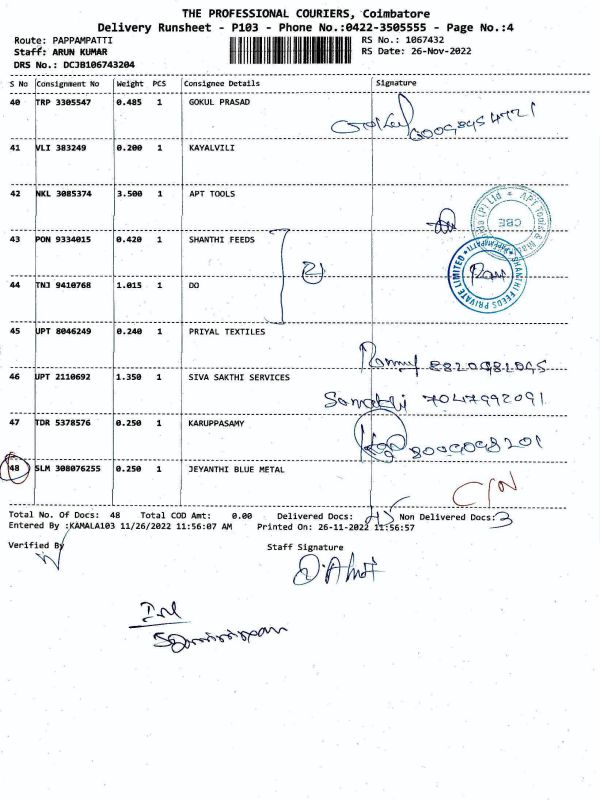 THE PROFESSIONAL COURIERS, Coimbatore
Delivery Runsheet - P103 - Phone No.:0422-3505555 - Page No.:4
Route: PAPPAMPATTI RS No.: 1067432
Staff: ARUN KUMAR RS Date: 26-Nov-2022
DRS No.: DCJB106743204
S No Consignment No Weight PCS Consignee Details Signature
40 TRP 3305547 0.485 1 GOKUL PRASAD
41 VLI 383249 0.200 1 KAYALVILI
42 NKL 3085374 3.500 1 APT TOOLS
CBE
43 PON 9334015 0.420 1 SHANTHI FEEDS
SHANTHI FEEDS PRIVATE LIMITED
44 TNJ 9410768 1.015 1 DO
45 UPT 8046249 0.240 1 PRIYAL TEXTILES
46 UPT 2110692 1.350 1 SIVA SAKTHI SERVICES
7047992091
47 TDR 5378576 0.250 1 KARUPPASAMY
48 SLM 308076255 0.250 1 JEYANTHI BLUE METAL
C/N
Total No. Of Docs: 48 Total COD Amt: 0.00 Delivered Docs: 45 Non Delivered Docs: 3
Entered By :KAMALA103 11/26/2022 11:56:07 AM Printed On: 26-11-2022 11:56:57
Verified By Staff Signature